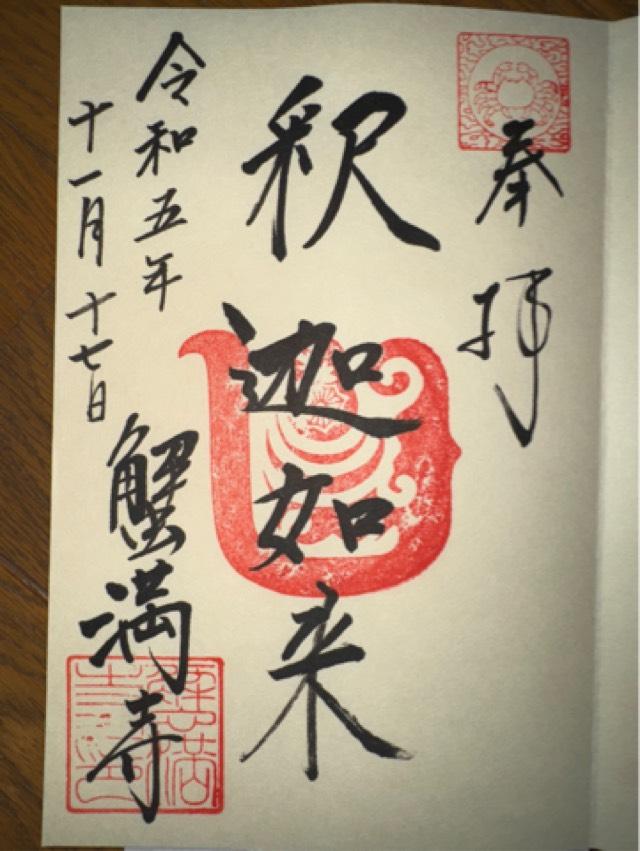 奉拝
釈迦如来
令和五年
十一月十七日
蟹満寺